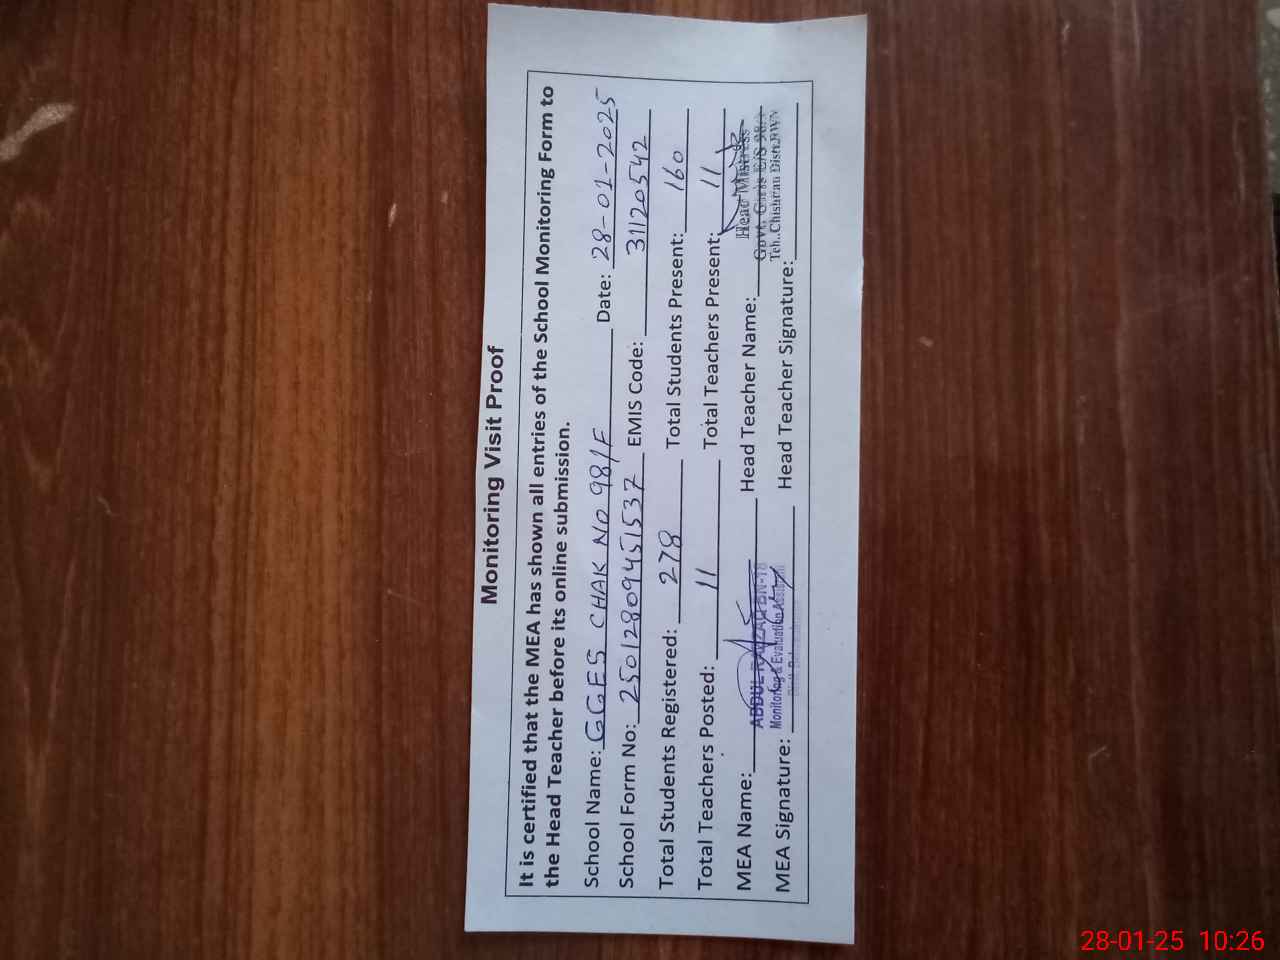 Monitoring Visit Proof
It is certified that the MEA has shown all entries of the School Monitoring Form to
the Head Teacher before its online submission.
School Name: GGES CHAK NO 98/F Date: 28-01-2025
School Form No: 25012809451537 EMIS Code: 31120542
Total Students Registered: 278 Total Students Present: 160
Total Teachers Posted: 11 Total Teachers Present: 11
MEA Name: Head Teacher Name:
ABDUL RAZZAQ BN-18
Monitoring & Evaluation Assistant
Head Mistress
Govt. Girls E/S 98/F
Teh. Chishtian Distt. BWN
MEA Signature: Head Teacher Signature:
28-01-25 10:26